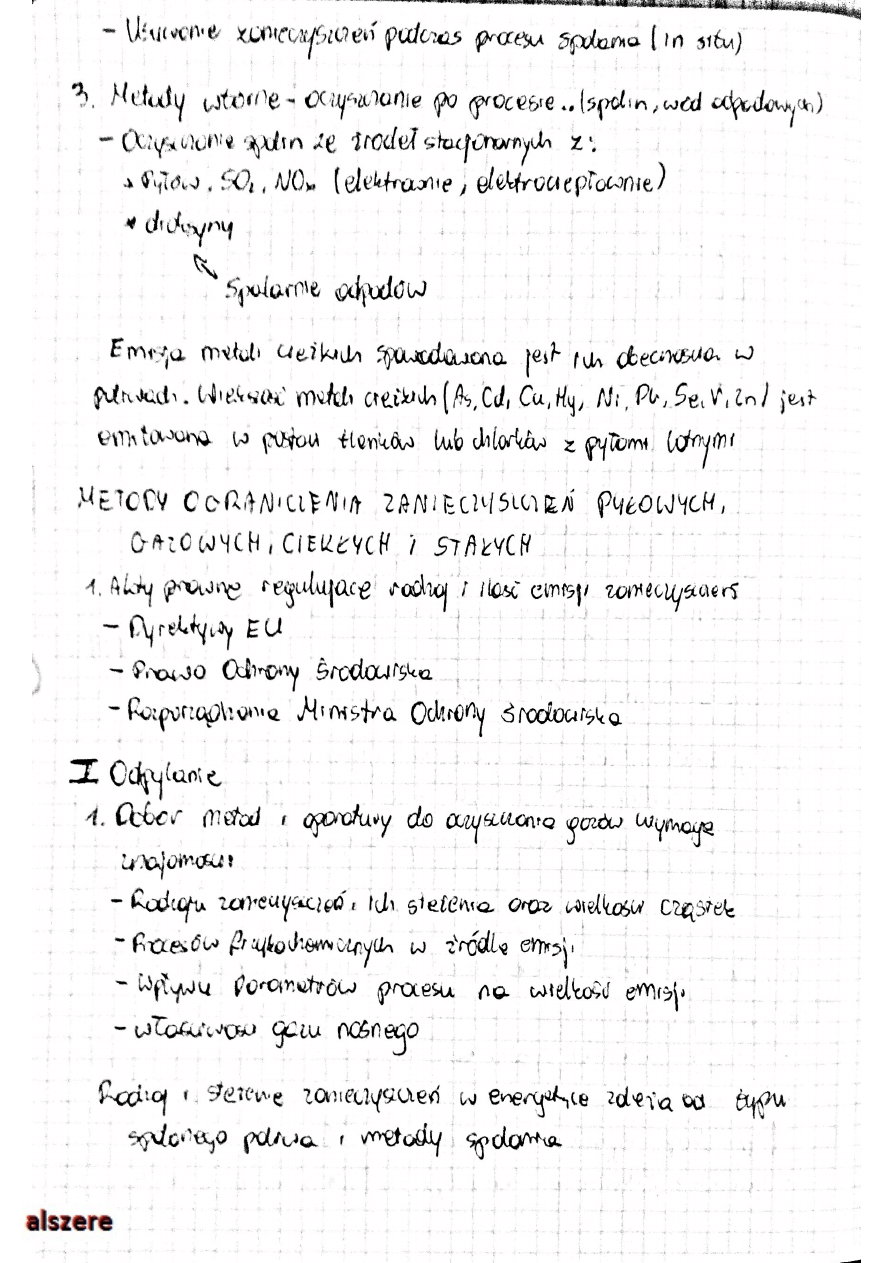 - Usuwanie zanieczyszczeń podczas procesu spalania (in situ)
3. Metody wtórne - oczyszczanie po procesie.. (spalin, wód odpadowych)
- Oczyszczanie spalin ze źródeł stacjonarnych z:
* Pyłów, SO₂, NOₓ (elektrownie, elektrociepłownie)
* dioksyny
Spalarnie odpadów
Emisja metali ciężkich spowodowana jest ich obecnością w
paliwach. Większość metali ciężkich (As, Cd, Cu, Hg, Ni, Pb, Se, V, Zn) jest
emitowana w postaci tlenków lub chlorków z pyłami lotnymi
METODY OGRANICZENIA ZANIECZYSZCZEŃ PYŁOWYCH,
GAZOWYCH, CIEKŁYCH I STAŁYCH
1. Akty prawne regulujące rodzaj i ilość emisji zanieczyszczeń
- Dyrektywy EU
- Prawo Ochrony Środowiska
- Rozporządzenia Ministra Ochrony Środowiska
I Odpylanie
1. Dobór metod i aparatury do oczyszczania gazów wymaga
znajomości:
- Rodzaju zanieczyszczeń, ich stężenia oraz wielkości cząstek
- Procesów fizykochemicznych w źródle emisji
- Wpływu parametrów procesu na wielkość emisji
- właściwości gazu nośnego
Rodzaj i stężenie zanieczyszczeń w energetyce zależą od typu
spalanego paliwa i metody spalania
alszere